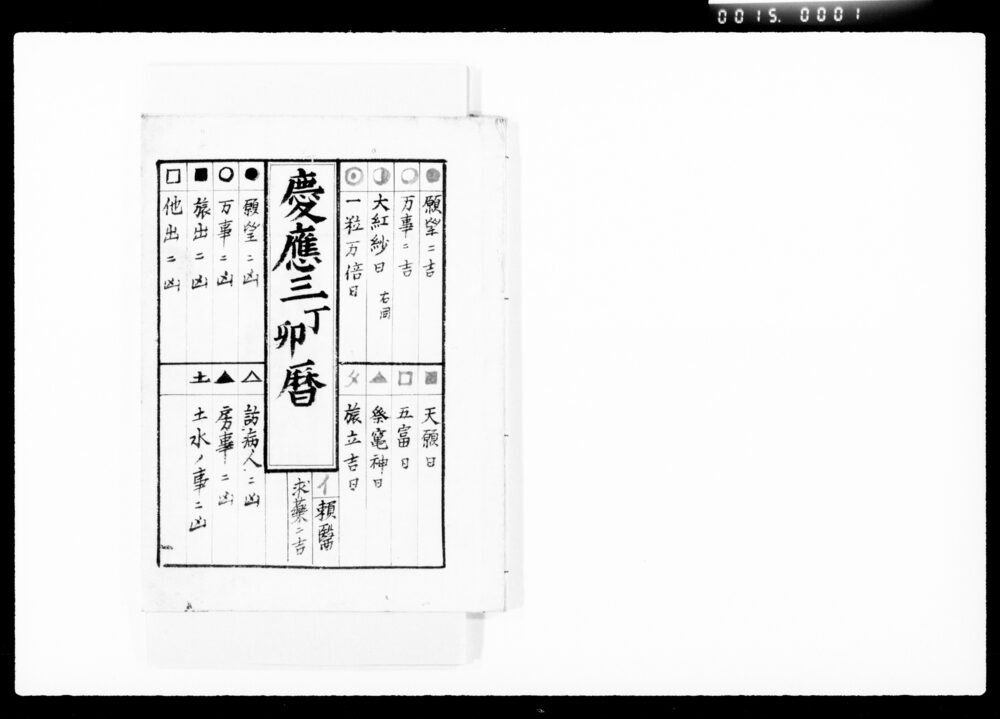 0015. 0001
願望ニ吉
万事ニ吉
大紅紗日 右同
一粒万倍日
天願日
五富日
祭竃神日
旅立吉日
イ 頼醫
求藥ニ吉
慶應三丁卯暦
願望ニ凶
万事ニ凶
旅出ニ凶
他出ニ凶
訪病人ニ凶
房事ニ凶
土 土水ノ事ニ凶